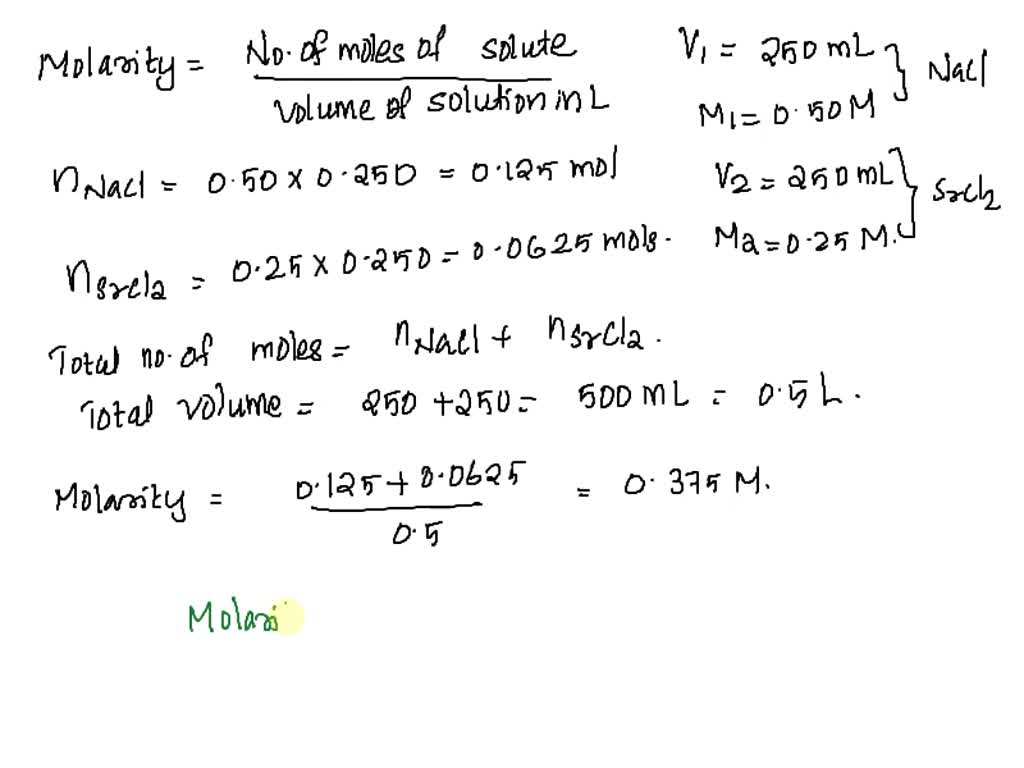 Molarity = No. of moles of solute / volume of solution in L
V1 = 250 mL } Nacl
M1 = 0.50 M
nNacl = 0.50 x 0.250 = 0.125 mol
V2 = 250 mL } Srcl2
M2 = 0.25 M.
nSrcl2 = 0.25 x 0.250 = 0.0625 mols.
Total no. of moles = nNacl + nSrCl2.
Total volume = 250 + 250 = 500 mL = 0.5 L.
Molarity = 0.125 + 0.0625 / 0.5 = 0.375 M.
Molari